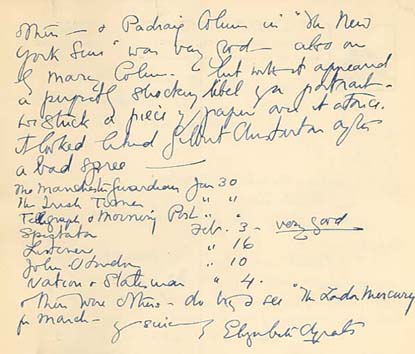 others — & Padraic Colum in "The New
York Sun" was very good — also on
by Mary Colum — but with it appeared
a perfectly shocking libel of a portrait —
we stuck a piece of paper over it at once.
It looked like Gilbert Chesterton after
a bad spree —
The Manchester Guardian Jan 30
The Irish Times " "
Telegraph & Morning Post " "
Spectator Feb. 3 — very good
Listener " 16
John O'London " 10
Nation & Statesman " 4.
& there were others — do try & see "The London Mercury
for March —
Yrs sincerely Elizabeth C Yeats